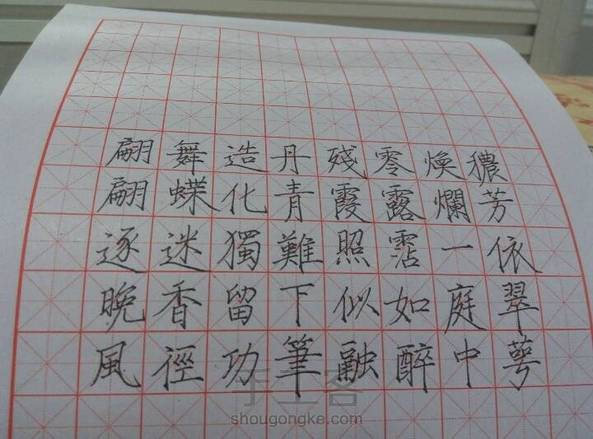 穠芳依翠萼
煥爛一庭中
零露霑如醉
殘霞照似融
丹青難下筆
造化獨留功
舞蝶迷香徑
翩翩逐晚風
手工客
shougongke.com